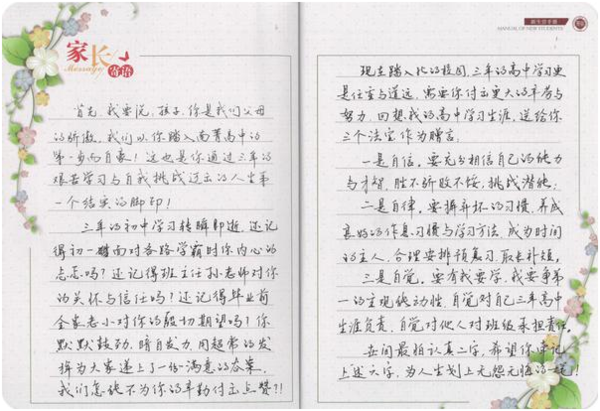 家长
Message
寄语
首先,我要说,孩子,你是我们父母
的骄傲,我们以你踏入南菁高中的
第一步而自豪!这也是你通过三年的
艰苦学习与自我挑战迈出的人生第
一个结实的脚印!
三年的初中学习转瞬即逝,还记
得初一时面对各路学霸时你内心的
忐忑吗?还记得班主任孙老师对你
的关怀与信任吗?还记得毕业前
全家老小对你的殷切期望吗?你
默默鼓劲,暗自发力,用超常的发
挥为大家递上了一份满意的答案,
我们怎能不为你的辛勤付出点赞!!
新生分手册
MANUAL OF NEW STUDENTS
现在踏入北的校园,三年的高中学习更
是任重与道远,需要你付出更大的辛劳与
努力,回想我的高中学习生涯,送给你
三个法宝作为赠言,
一是自信。要充分相信自己的能力
与才智,胜不骄败不馁,挑战潜能;
二是自律。要摒弃坏的习惯,养成
良好的作息习惯与学习方法,成为时间
的主人,合理安排预复习,取长补短。
三是自觉。要有我要学,我要争第
一的主观能动性,自觉对自己三年高中
生涯负责,自觉对他人对班级承担责任。
世间最怕认真二字,希望你谨记
上述六字,为人生划上无怨无悔的一笔!